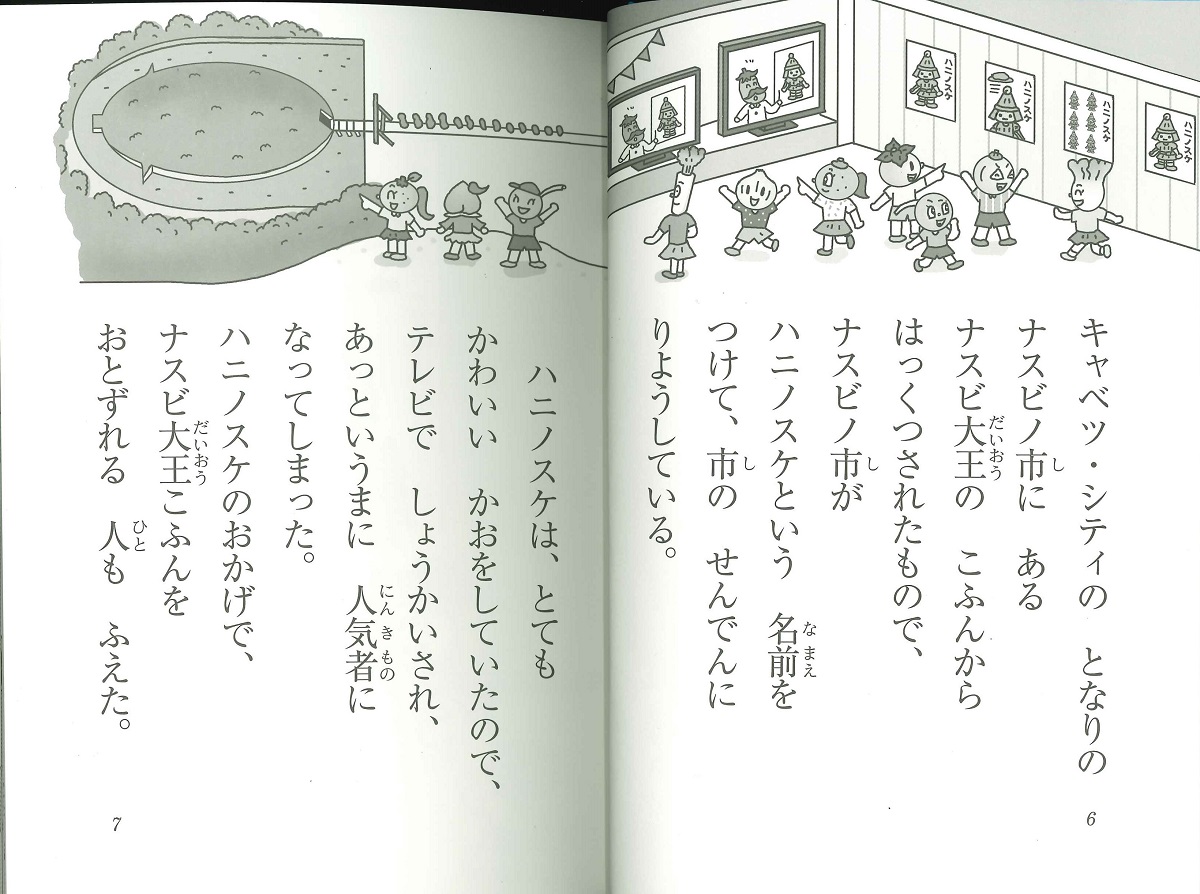 ハニノスケ
ハニノスケ
ハニノスケ
ハニノスケ
キャベツ・シティの　となりの
ナスビノ市に　ある
ナスビ大王の　こふんから
はっくつされたもので、
ナスビノ市が
ハニノスケという　名前を
つけて、市の　せんでんに
りようしている。
6
ハニノスケは、とても
かわいい　かおをしていたので、
テレビで　しょうかいされ、
あっというまに　人気者に
なってしまった。
ハニノスケのおかげで、
ナスビ大王こふんを
おとずれる　人も　ふえた。
7